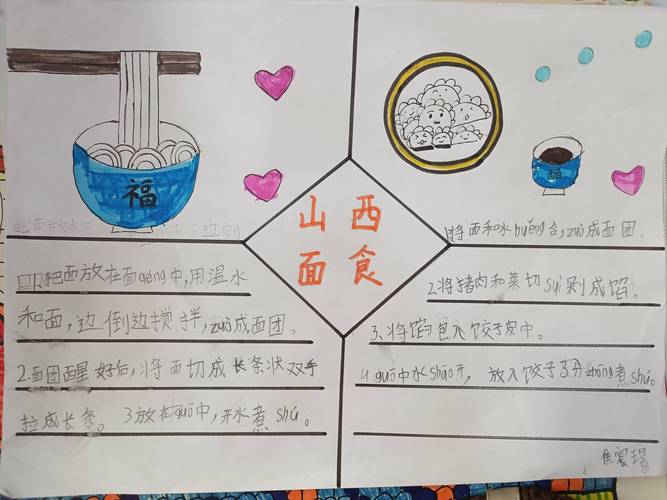 福
山西
面食
醋
把面放在面gāng中,用温水
和面,边倒边搅拌,zuò成面团。
2.面团醒好后,将面切成长条状双手
拉成长条。 3放在guō中,开水煮shú。
将面和水hùng合,zuò成面团。
2.将猪肉和菜切suì剁成馅。
3、将馅包入饺子皮中。
4guō中水shāo开, 放入饺子8分zhōng煮shú。